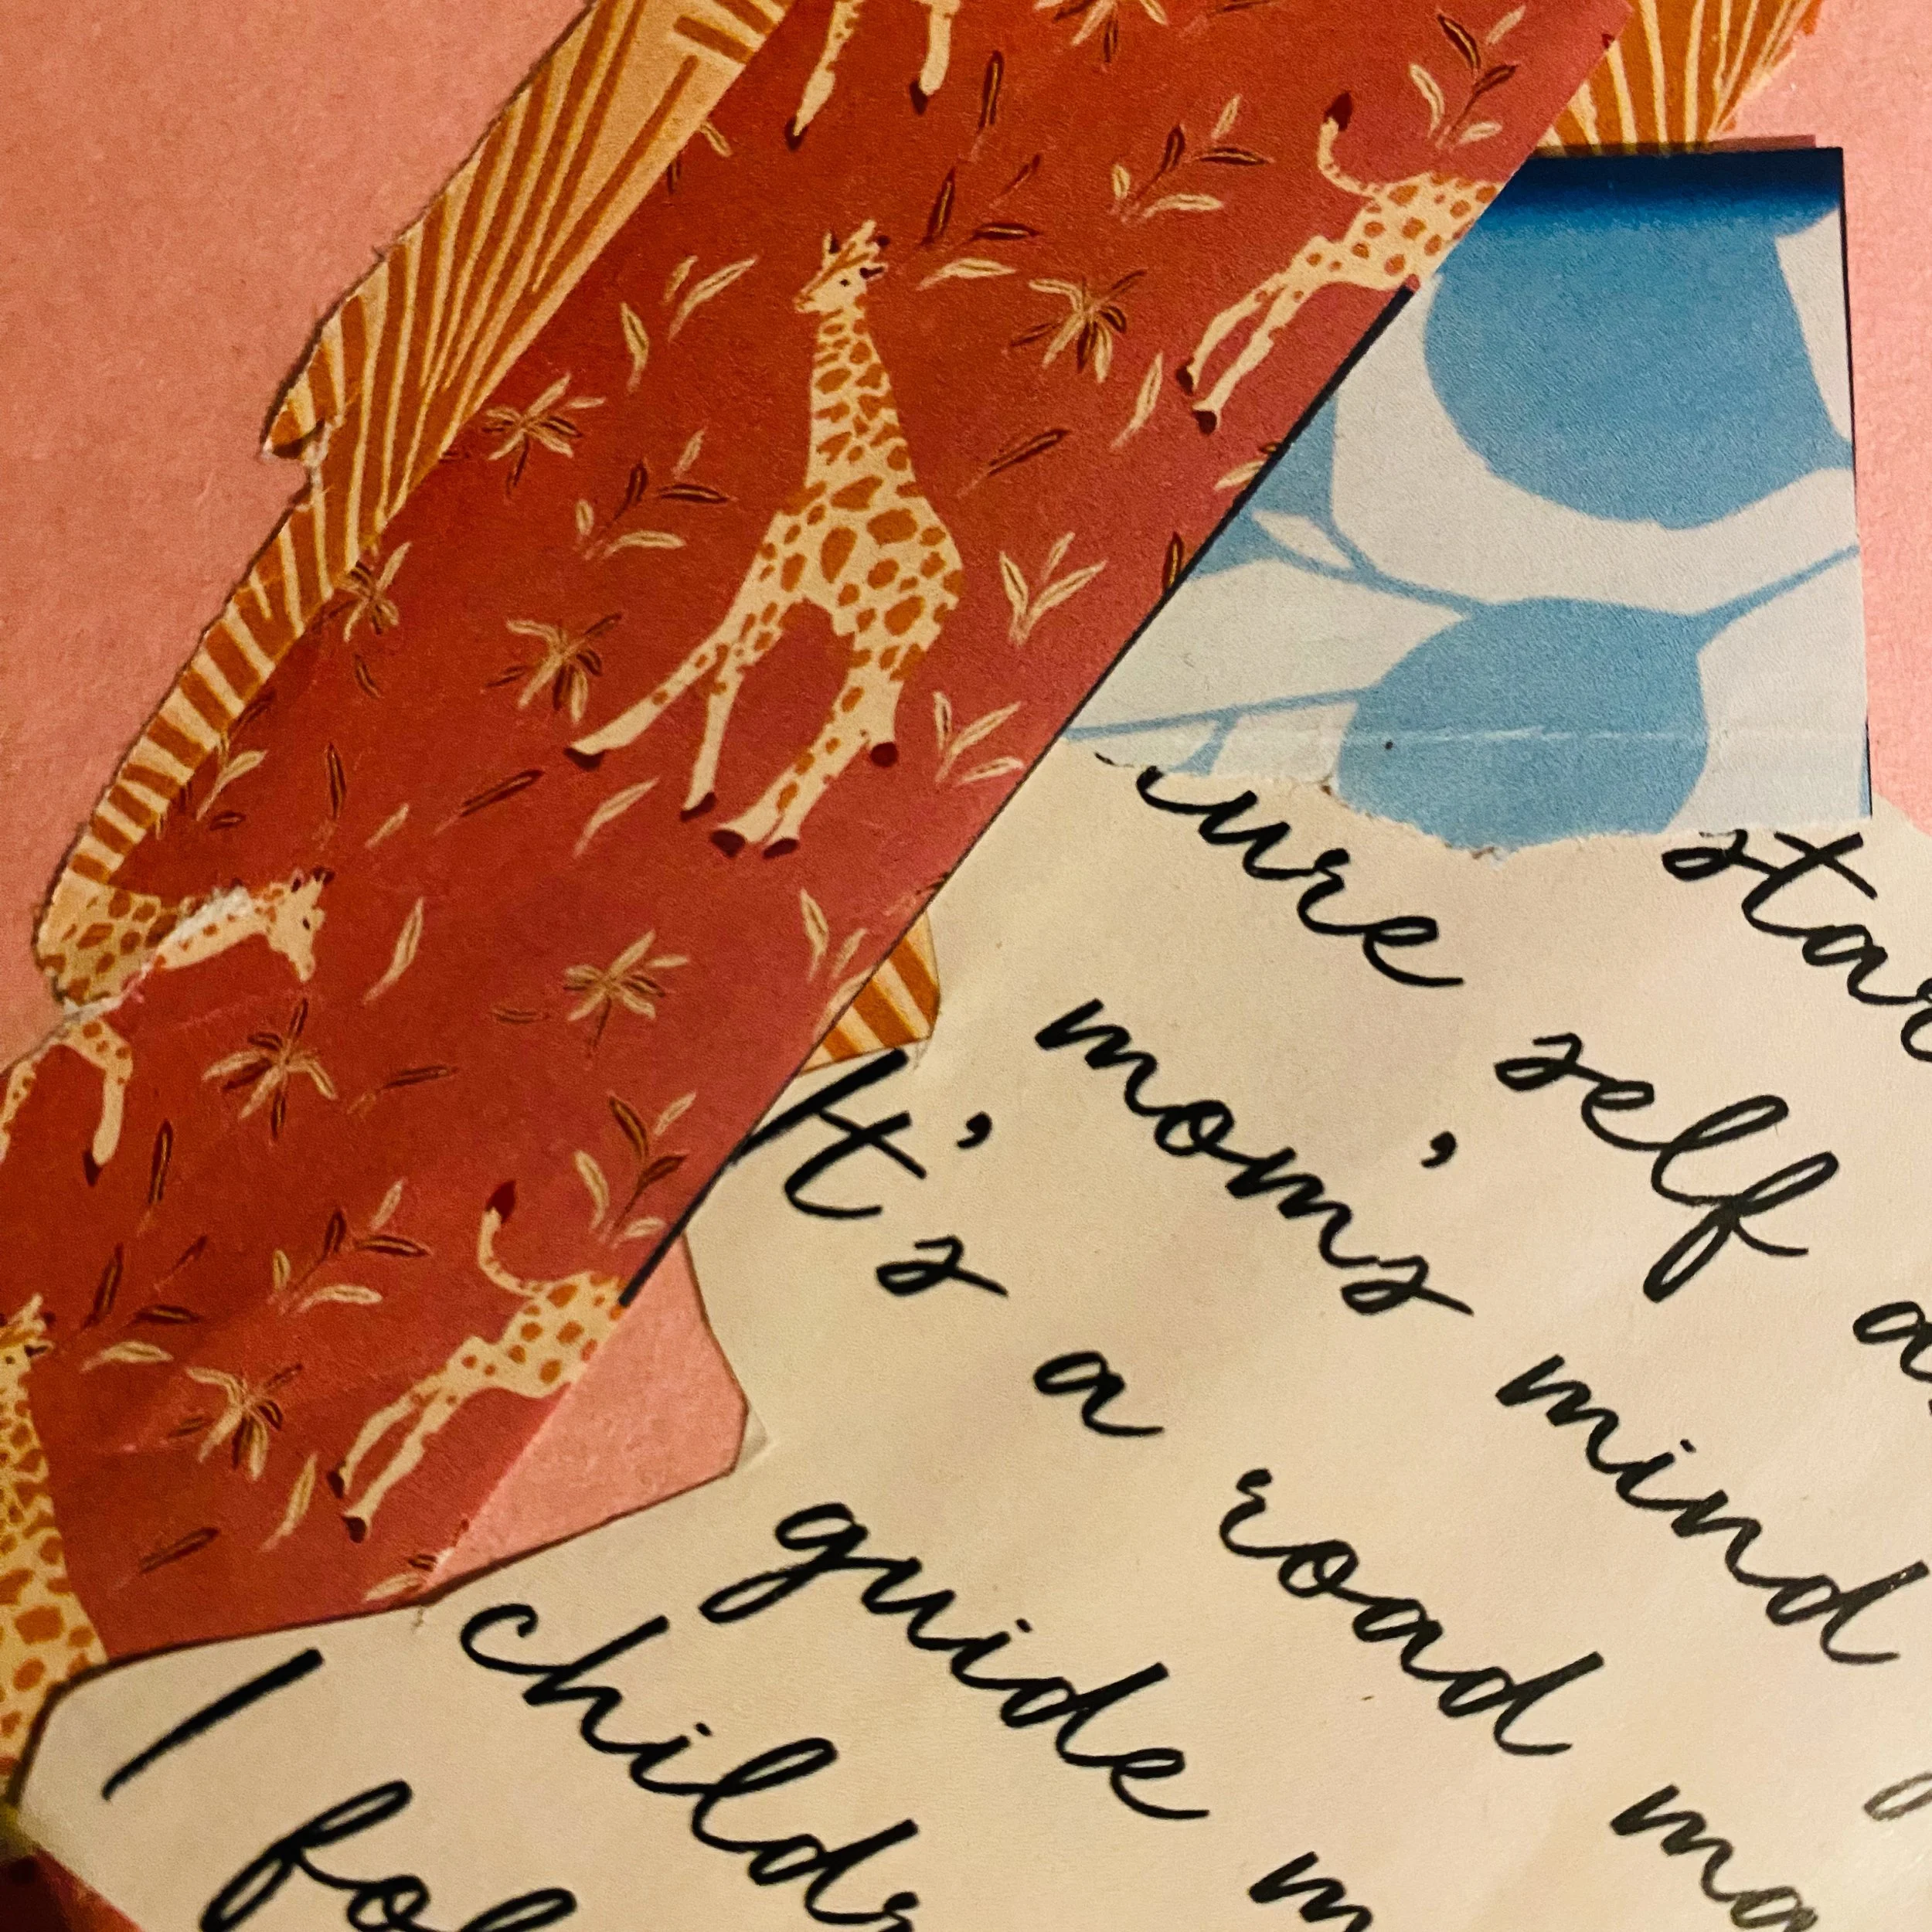 star
ure self a
mom's mind
It's a road ma
guide m
childr
I fol